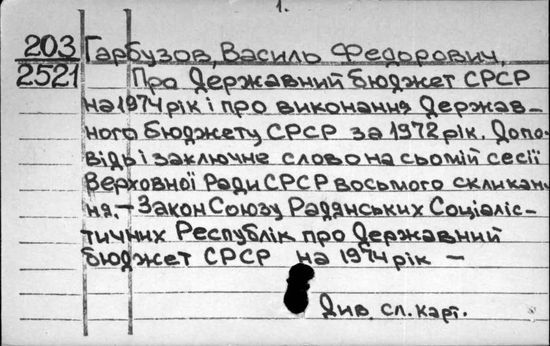 1.
203 Гарбузов, Василь Федорович,
2521 Про Державний бюджет СРСР
на 1974 рік і про виконання Держав-
ного бюджету СРСР за 1972 рік. Допо-
відь і заключне слово на сьомій сесії
Верховної Ради СРСР восьмого скликан-
ня. – Закон Союзу Радянських Соціаліс-
тичних Республік про Державний
бюджет СРСР на 1974 рік –
Див. сл. карт.